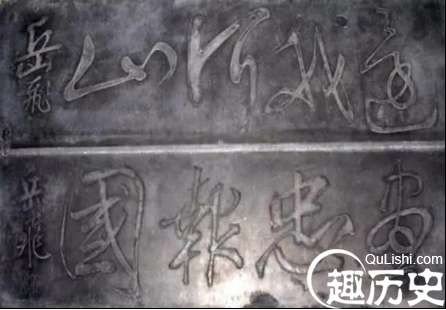 還我河山
岳飛
盡忠報國
岳飛
QuLishi.com
趣历史